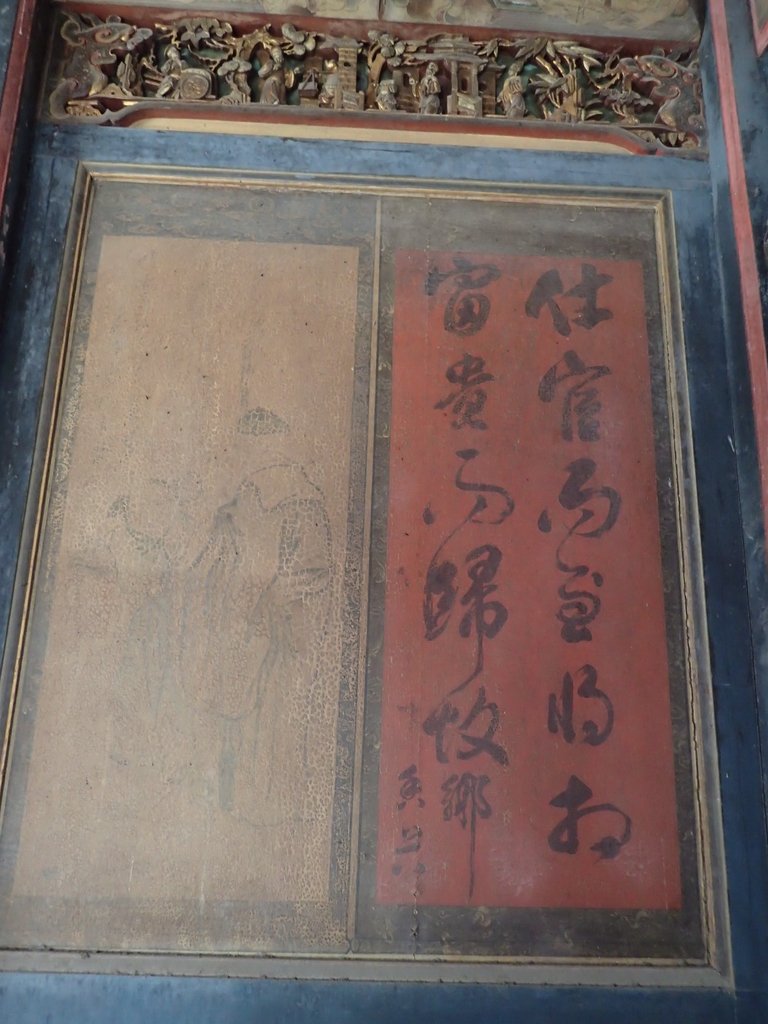 仕宦而至將相
富貴而歸故鄉